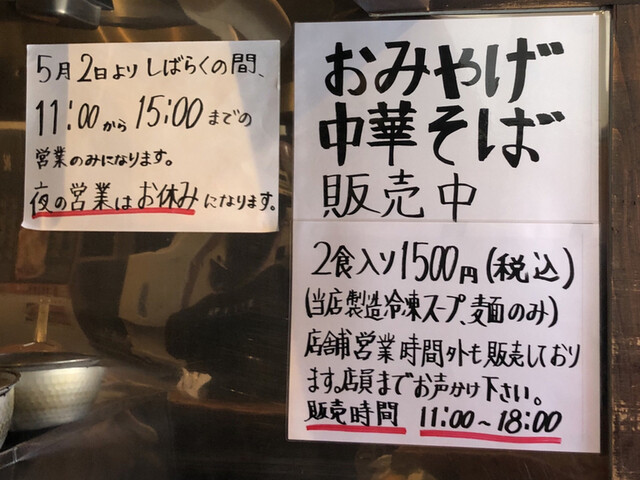 5月2日よりしばらくの間、
11:00から15:00までの
営業のみになります。
夜の営業はお休みになります。
おみやげ
中華そば
販売中
2食入り1500円(税込)
(当店製造冷凍スープ、麺のみ)
店舗営業時間外も販売しており
ます。店員までお声かけ下さい。
販売時間 11:00~18:00